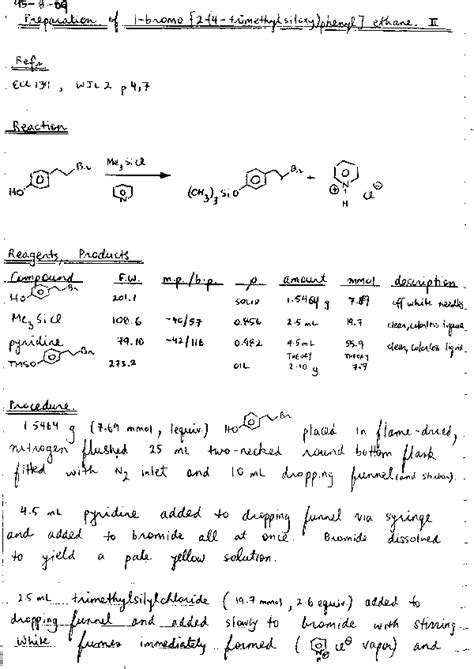 45-8-09
Preparation of 1-bromo [2-(4-trimethylsiloxy)phenyl] ethane. II
Refs
ECL 1341, WJL 2 p 4,7
Reaction
HO Br Me3SiCl N (CH3)3SiO Br + N H Cl⊖
Reagents, Products
Compound F.W. m.p./b.p. ρ amount mmol description
HO Br 201.1 SOLID 1.5464 g 7.69 off white needles
Me3SiCl 108.6 -40/57 0.856 2.5 mL 19.7 clear, colorless liquid
pyridine 79.10 -42/116 0.982 4.5 mL 55.9 clear, colorless liquid
TMSO Br 273.2 OIL THEORY 2.10 g THEORY 7.69
Procedure
1.5464 g (7.69 mmol, 1 equiv.) HO Br placed in flame-dried,
nitrogen flushed 25 mL two-necked round bottom flask
fitted with N2 inlet and 10 mL dropping funnel (and stirbar).
4.5 mL pyridine added to dropping funnel via syringe
and added to bromide all at once. Bromide dissolved
to yield a pale yellow solution.
2.5 mL trimethylsilylchloride (19.7 mmol, 2.6 equiv) added to
dropping funnel and added slowly to bromide with stirring.
White fumes immediately formed (N Cl⊖ vapor) and